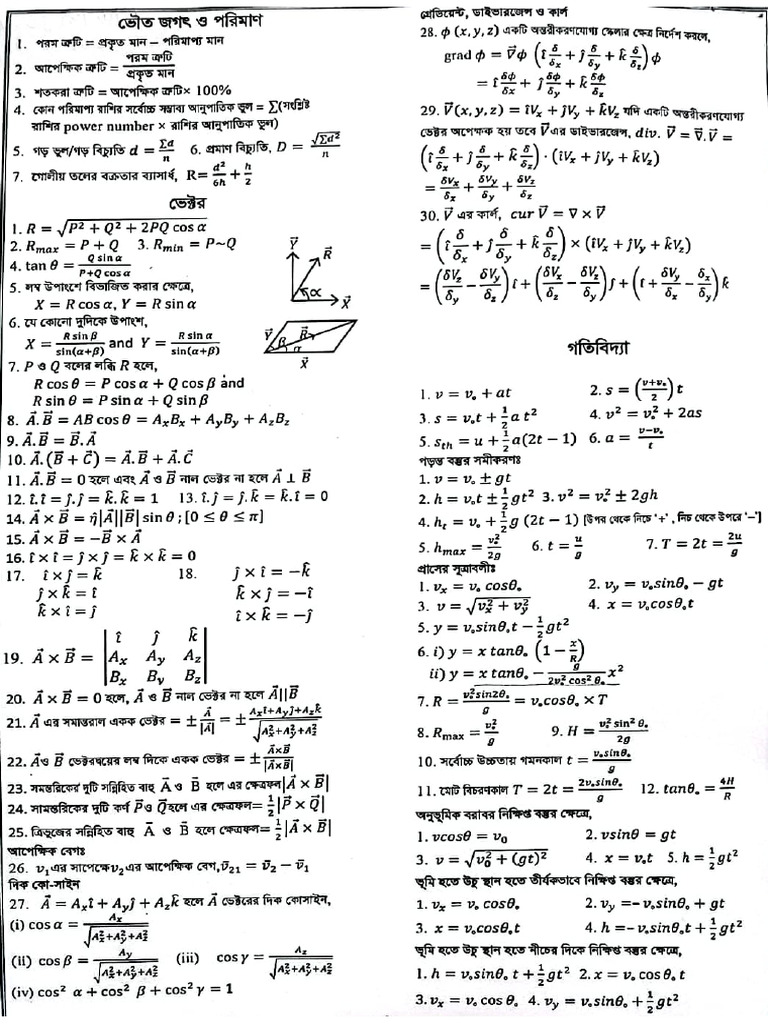 ভৌত জগৎ ও পরিমাণ
1. পরম ত্রুটি = প্রকৃত মান – পরিমাপ্য মান
2. আপেক্ষিক ত্রুটি = পরম ত্রুটি / প্রকৃত মান
3. শতকরা ত্রুটি = আপেক্ষিক ত্রুটি× 100%
4. কোন পরিমাপ্য রাশির সর্বোচ্চ সম্ভাব্য আনুপাতিক ভুল = Σ(সংশ্লিষ্ট
রাশির power number × রাশির আনুপাতিক ভুল)
5. গড় ভুল/গড় বিচ্যুতি d = Σd/n 6. প্রমাণ বিচ্যুতি, D = √Σd²/n
7. গোলীয় তলের বক্রতার ব্যাসার্ধ, R= d²/6h + h/2
ভেক্টর
1. R = √(P² + Q² + 2PQ cos α)
2. R_max = P + Q 3. R_min = P~Q
4. tan θ = Q sin α / (P+Q cos α)
5. লম্ব উপাংশে বিভাজিত করার ক্ষেত্রে,
X = R cos α, Y = R sin α
Y⃗ R⃗ α X⃗
6. যে কোনো দুদিকে উপাংশ,
X = R sin β / sin(α+β) and Y = R sin α / sin(α+β)
Y⃗ β R⃗ α X⃗
7. P ও Q বলের লব্ধি R হলে,
R cos θ = P cos α + Q cos β and
R sin θ = P sin α + Q sin β
8. A⃗.B⃗ = AB cos θ = AₓBₓ + A_yB_y + A_zB_z
9. A⃗.B⃗ = B⃗.A⃗
10. A⃗.(B⃗ + C⃗) = A⃗.B⃗ + A⃗.C⃗
11. A⃗.B⃗ = 0 হলে এবং A⃗ ও B⃗ নাল ভেক্টর না হলে A⃗ ⊥ B⃗
12. î.î = ĵ.ĵ = k̂.k̂ = 1 13. î.ĵ = ĵ.k̂ = k̂.î = 0
14. A⃗ × B⃗ = η̂|A⃗||B⃗| sin θ ; [0 ≤ θ ≤ π]
15. A⃗ × B⃗ = −B⃗ × A⃗
16. î × î = ĵ × ĵ = k̂ × k̂ = 0
17. î × ĵ = k̂ 18. ĵ × î = −k̂
ĵ × k̂ = î k̂ × ĵ = −î
k̂ × î = ĵ î × k̂ = −ĵ
19. A⃗ × B⃗ = | î ĵ k̂ |
| Aₓ A_y A_z |
| Bₓ B_y B_z |
20. A⃗ × B⃗ = 0 হলে, A⃗ ও B⃗ নাল ভেক্টর না হলে A⃗||B⃗
21. A⃗ এর সমান্তরাল একক ভেক্টর = ± A⃗/|A⃗| = ± (Aₓî+A_yĵ+A_zk̂)/√(Aₓ²+A_y²+A_z²)
22. A⃗ও B⃗ ভেক্টরদ্বয়ের লম্ব দিকে একক ভেক্টর = ± (A⃗×B⃗)/|A⃗×B⃗|
23. সমান্তরিকের দুটি সন্নিহিত বাহু A⃗ ও B⃗ হলে এর ক্ষেত্রফল|A⃗ × B⃗|
24. সামন্তরিকের দুটি কর্ণ P⃗ও Q⃗হলে এর ক্ষেত্রফল= ½|P⃗ × Q⃗|
25. ত্রিভুজের সন্নিহিত বাহু A⃗ ও B⃗ হলে ক্ষেত্রফল= ½|A⃗ × B⃗|
আপেক্ষিক বেগঃ
26. v₁এর সাপেক্ষেv₂এর আপেক্ষিক বেগ, v̄₂₁ = v̄₂ − v̄₁
দিক কো-সাইন
27. A⃗ = Aₓî + A_yĵ + A_zk̂ হলে A⃗ ভেক্টরের দিক কোসাইন,
(i) cos α = Aₓ/√(Aₓ²+A_y²+A_z²)
(ii) cos β = A_y/√(Aₓ²+A_y²+A_z²) (iii) cos γ = A_z/√(Aₓ²+A_y²+A_z²)
(iv) cos² α + cos² β + cos² γ = 1
গ্রেডিয়েন্ট, ডাইভারজেন্স ও কার্ল
28. ϕ (x, y, z) একটি অন্তরীকরণযোগ্য স্কেলার ক্ষেত্র নির্দেশ করলে,
grad ϕ = ∇⃗ϕ (î δ/δx + ĵ δ/δy + k̂ δ/δz)ϕ
= î δϕ/δx + ĵ δϕ/δy + k̂ δϕ/δz
29. V⃗(x, y, z) = îVₓ + ĵV_y + k̂V_z যদি একটি অন্তরীকরণযোগ্য
ভেক্টর অপেক্ষক হয় তবে V⃗ এর ডাইভারজেন্স, div. V⃗ = ∇⃗.V⃗ =
(î δ/δx + ĵ δ/δy + k̂ δ/δz) · (îVₓ + ĵV_y + k̂V_z)
= δVₓ/δx + δV_y/δy + δV_z/δz
30. V⃗ এর কার্ল, cur V⃗ = ∇ × V⃗
= (î δ/δx + ĵ δ/δy + k̂ δ/δz) × (îVₓ + ĵV_y + k̂V_z)
= (δV_z/δy − δV_y/δz) î + (δVₓ/δz − δV_z/δy) ĵ + (î + δV_y/δx − δₓ/δy) k̂
গতিবিদ্যা
1. v = v₀ + at 2. s = ((v+v₀)/2) t
3. s = v₀t + ½ a t² 4. v² = v₀² + 2as
5. s_th = u + ½a(2t − 1) 6. a = (v−v₀)/t
পড়ন্ত বস্তুর সমীকরণঃ
1. v = v₀ ± gt
2. h = v₀t ± ½gt² 3. v² = v₀² ± 2gh
4. h_t = v₀ + ½g (2t − 1) [উপর থেকে নিচে ‘+’ , নিচ থেকে উপরে ‘–’]
5. h_max = v₀²/2g 6. t = u/g 7. T = 2t = 2u/g
প্রাসের সূত্রাবলীঃ
1. vₓ = v₀ cosθ₀ 2. v_y = v₀sinθ₀ − gt
3. v = √(vₓ² + v_y²) 4. x = v₀cosθ₀t
5. y = v₀sinθ₀t − ½gt²
6. i) y = x tanθ₀ (1 − x/R)
ii) y = x tanθ₀ − g/(2v₀² cos² θ₀) x²
7. R = v₀²sin2θ₀/g = v₀cosθ₀ × T
8. R_max = v₀²/g 9. H = v₀² sin² θ₀/2g
10. সর্বোচ্চ উচ্চতায় গমনকাল t = v₀sinθ₀/g
11. মোট বিচরণকাল T = 2t = 2v₀sinθ₀/g 12. tanθ₀ = 4H/R
অনুভূমিক বরাবর নিক্ষিপ্ত বস্তুর ক্ষেত্রে,
1. vcosθ = v₀ 2. vsinθ = gt
3. v = √(v₀² + (gt)²) 4. x = v₀t 5. h = ½gt²
ভূমি হতে উচু স্থান হতে তীর্যকভাবে নিক্ষিপ্ত বস্তুর ক্ষেত্রে,
1. vₓ = v₀ cosθ₀ 2. v_y =− v₀sinθ₀ + gt
3. x = v₀cosθ₀t 4. h =− v₀sinθ₀t + ½gt²
ভূমি হতে উচু স্থান হতে নীচের দিকে নিক্ষিপ্ত বস্তুর ক্ষেত্রে,
1. h = v₀sinθ₀ t + ½gt² 2. x = v₀ cos θ₀ t
3. vₓ = v₀ cos θ₀ 4. v_y = v₀sinθ₀ + ½gt²